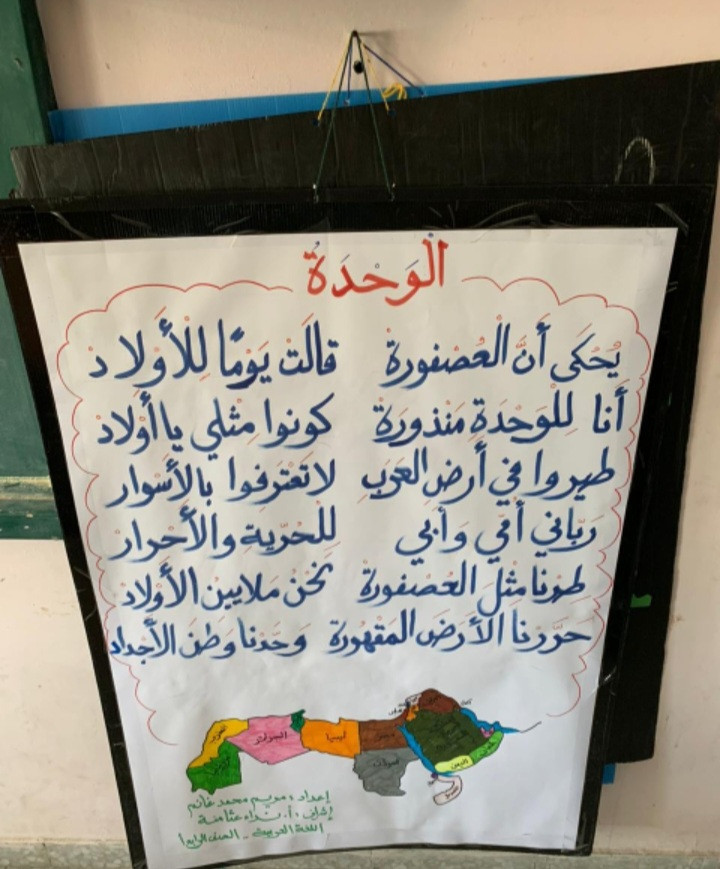 الْوَحْدَةُ
يُحْكى أَنَّ الْعُصْفورَةْ قالَتْ يَوْمًا لِلْأَوْلادْ
أَنا لِلْوَحْدَةِ مَنْذورَةْ كونوا مِثْلي يا أَوْلادْ
طيروا في أَرْضِ العَرَبِ لا تَعْتَرِفوا بِالأَسْوار
رَبّاني أُمّي وَأَبي لِلْحُرِّيةِ والأَحْرار
طِرْنا مِثْلَ العُصْفورَةْ نَحْنُ مَلايينُ الأَوْلادْ
حَرَّرْنا الأَرْضَ المَقْهورَةْ وَحَّدْنا وَطَنَ الأَجْداد
المغرب
الجزائر
ليبيا
مصر
السودان
اليمن
إعداد: مريم محمد غانم
إشراف: أ. نداء عثامنة
اللغة العربية - الصف الرابع أ